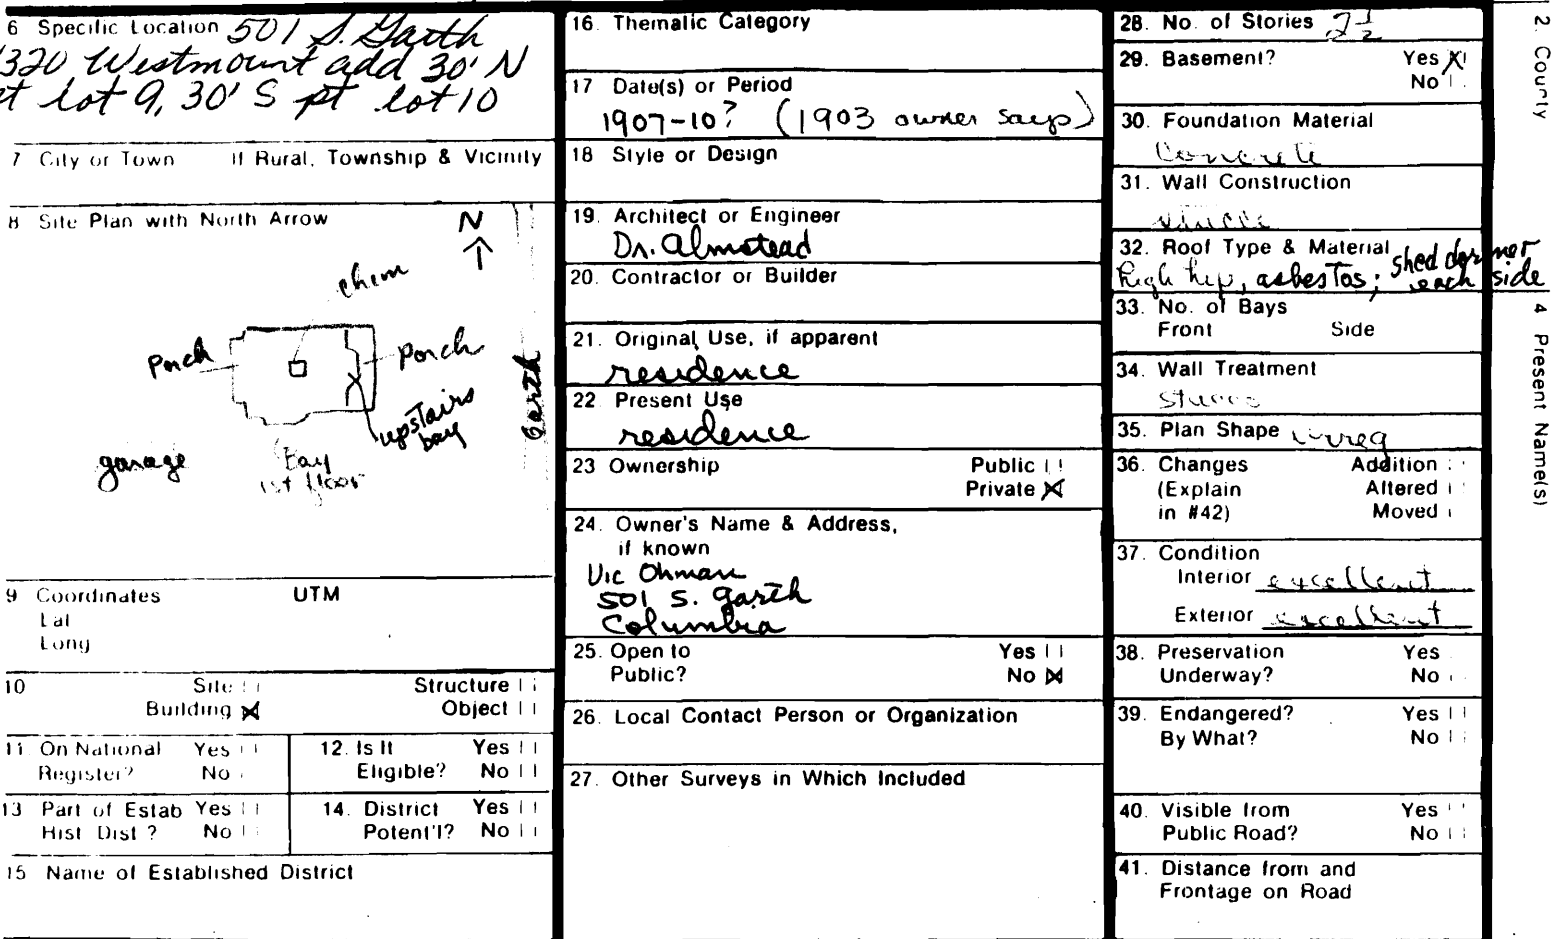 6 Specific Location 501 S. Garth
1320 Westmount add 30' N
pt lot 9, 30' S pt lot 10
7 City or Town If Rural, Township & Vicinity
8 Site Plan with North Arrow
N
chim
Porch
Porch
Garth
upstairs
bay
garage
Bay
1st floor
9 Coordinates UTM
Lat
Long
10 Site Structure
Building Object
11 On National Yes
Register? No
12. Is It Yes
Eligible? No
13 Part of Estab Yes
Hist Dist? No
14. District Yes
Potent'l? No
15 Name of Established District
16. Thematic Category
17 Date(s) or Period
1907-10? (1903 owner says)
18 Style or Design
19. Architect or Engineer
Dr. Almstead
20. Contractor or Builder
21. Original Use, if apparent
residence
22. Present Use
residence
23 Ownership Public
Private
24. Owner's Name & Address,
if known
Vic Ohman
501 S. Garth
Columbia
25. Open to Yes
Public? No
26. Local Contact Person or Organization
27. Other Surveys in Which Included
28. No. of Stories 2 1/2
29. Basement? Yes X
No
30. Foundation Material
Concrete
31. Wall Construction
stucco
32. Roof Type & Material
high hip, asbestos; shed dormer
each side
33. No. of Bays
Front Side
34. Wall Treatment
stucco
35. Plan Shape irreg
36. Changes Addition
(Explain Altered
in #42) Moved
37. Condition
Interior excellent
Exterior excellent
38. Preservation Yes
Underway? No
39. Endangered? Yes
By What? No
40. Visible from Yes
Public Road? No
41. Distance from and
Frontage on Road
2. County
4 Present Name(s)